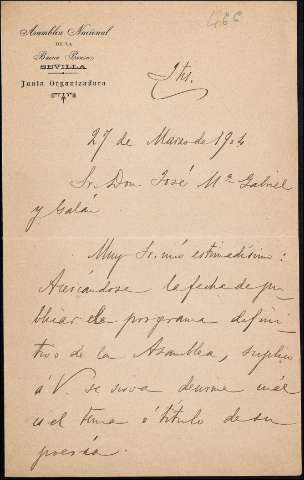 Asamblea Nacional
DE LA
Buena Prensa
SEVILLA
Junta Organizadora
27 de Marzo de 1904
Sr. Don José Mª Gabriel
y Galán
Muy Sr. mío estimadísimo:
Acercándose la fecha de pu-
blicar el programa defini-
tivo de la Asamblea, suplico
á V. se sirva decirme cuál
es el tema ó título de su
poesía.